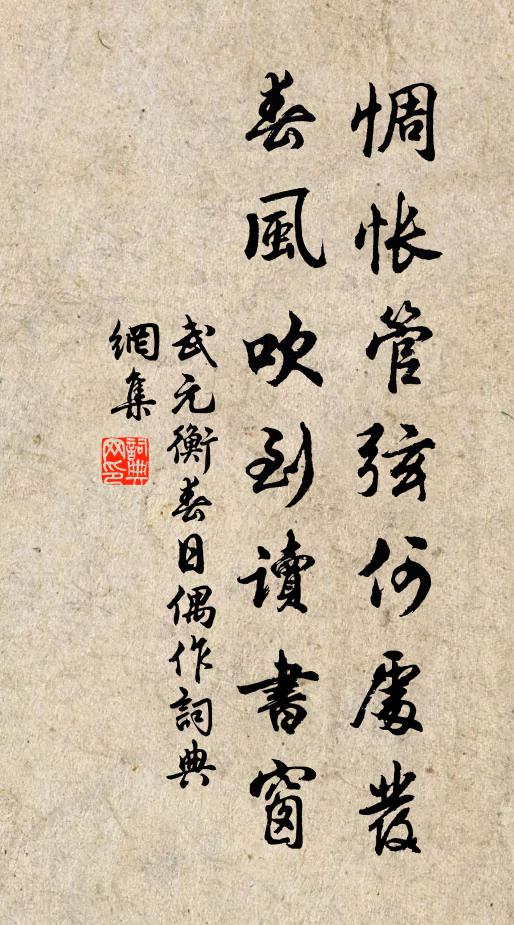 惆悵管弦何處發
春風吹到讀書窗
武元衡春日偶作詞典
網集
詞典
网印